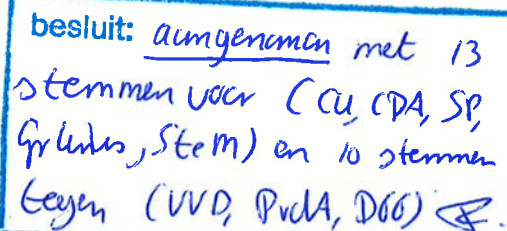 besluit: aangenomen met 13
stemmen voor (CU, CDA, SP,
GrLinks, SteM) en 10 stemmen
tegen (VVD, PvdA, D66)